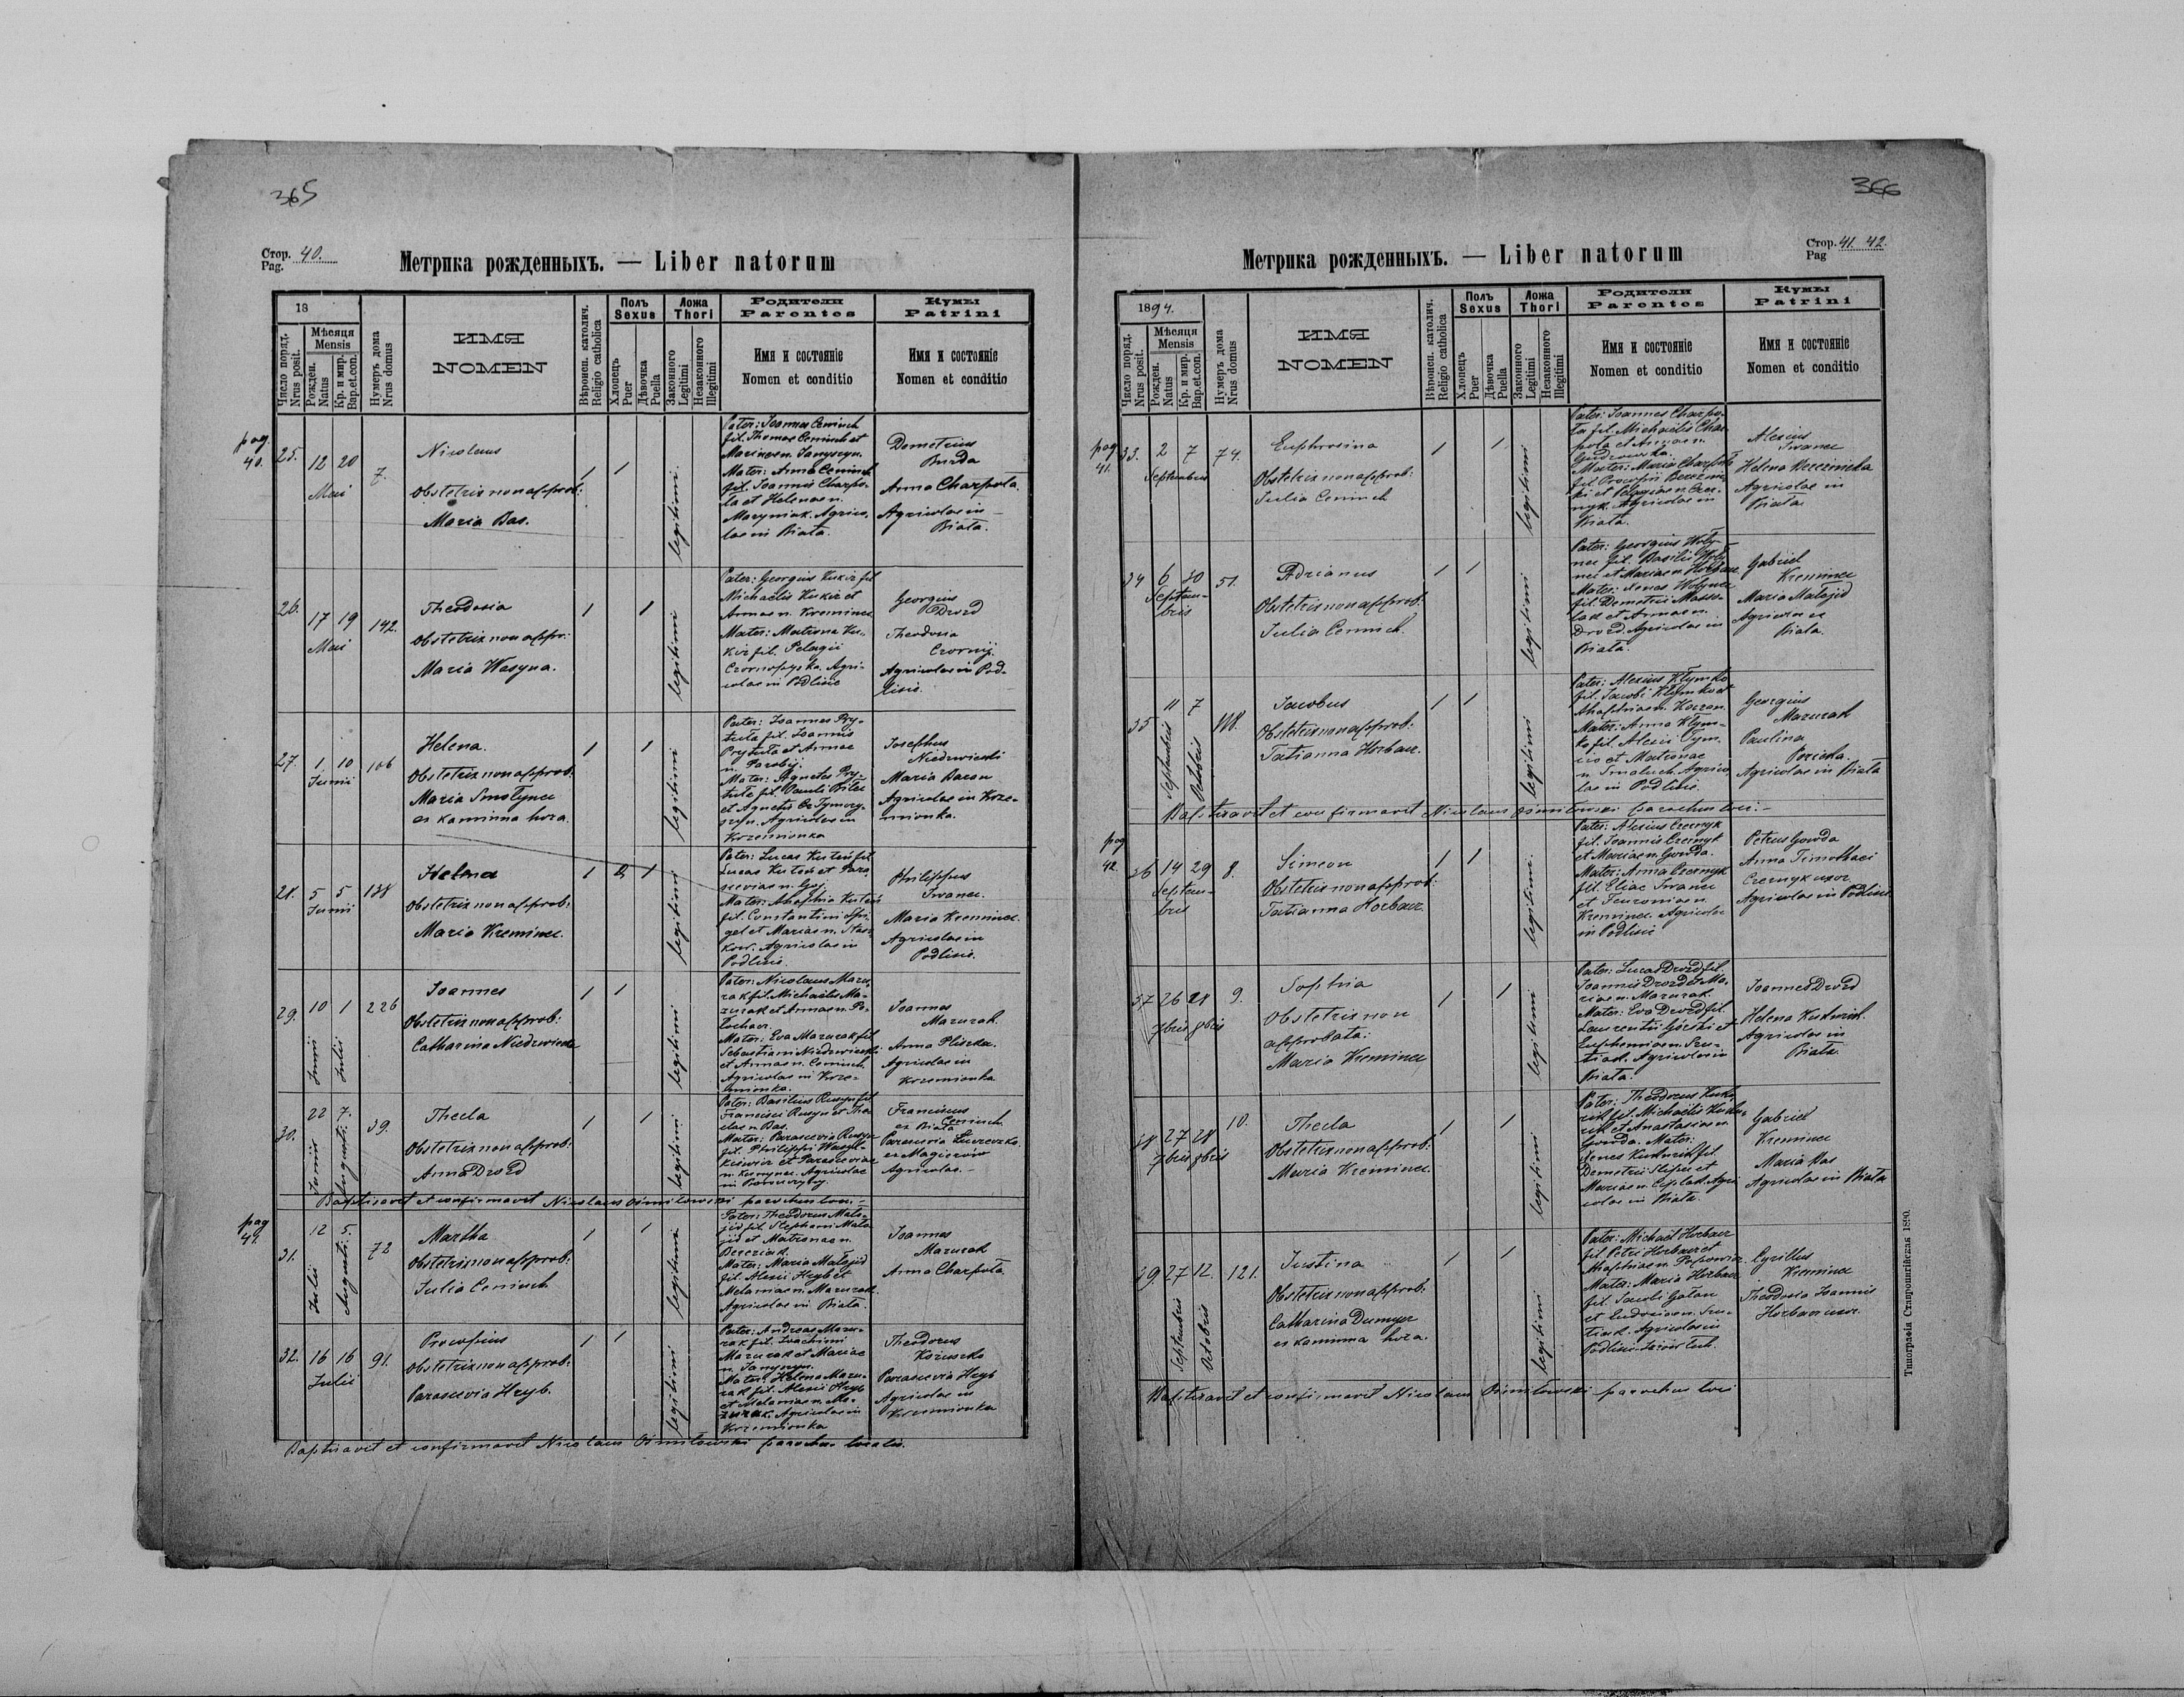 365
Стор. 40.
Pag.
Метрика рожденныхъ. — Liber natorum
18
Число поряд.
Nrus posit.
Мѣсяця
Mensis
Рожден.
Natus
Кр. и мир.
Bap.et.con.
Нумеръ дома
Nrus domus
ИМЯ
NOMEN
Вѣроисп. католич.
Religio catholica
Полъ
Sexus
Хлопецъ
Puer
Дѣвочка
Puella
Ложа
Thori
Законного
Legitimi
Незаконного
Illegitimi
Родители
Parentes
Имя и состояніе
Nomen et conditio
Кумы
Patrini
Имя и состояніе
Nomen et conditio
pag.
40.
25.
12 20
Maii
7.
Nicolaus
Obstetrix non approb:
Maria Bas.
1 1
legitimi.
Pater: Joannes Ceminch
fil. Thomae Ceminch et
Mater: Anna Ceminch
fil. Joannis Charpo-
ta et Helenae n.
Maryniak. Agrico-
lae in Biała.
Demetrius
Burda
Anna Charpota.
Agricolae in
Biała.
26.
17 19
Maii
142.
Theodosia
Obstetrix non appro:
Maria Wasyna.
1 1
legitimi
Pater: Georgius Kukiz fil
Michaelis Kukiz et
Annae n. Kreminec
Mater: Matrona Ku-
kiz fil. Pelagii
Agri-
colae in Podlisie
Georgius
Drozd
Theodosia
Czornij.
Agricolae in Pod-
lisie.
27.
1 10
Junii
106
Helena.
Obstetrix non approb.
Maria Smolynec
ex kaminna hora
1 1
legitimi
Pater: Joannes Pry-
tuła fil. Joannis
Prytuła et Annae
n. Parobij.
Mater: Agnetes Pry-
tuła fil. Pauli
et Agnetis
Agricolae in
Krzemionka
Josephus
Niedzwiecki
Maria Baran
Agricolae in Krze-
mionka.
28.
5 5
Junii
138
Helena
Obstetrix non approb.
Maria Kreminec.
1 1
legitimi
Pater: Lucas
fil. Constantini
Agricolae in
Podlisie.
Philippus
Iwanec.
Maria Kreminec.
Agricolae in
Podlisie.
29.
10 1
Junii Julii
226
Joannes
Obstetrix non approb:
Catharina Niedzwiecka
1 1
legitimi
Pater: Nicolaus Mazu-
rak fil. Michaelis Ma-
zurak et Annae n.
Mater: Eva Mazurak fil
Sebastiani Niedzwiecki
et Annae n. Ceminch
Agricolae in Krze-
mionka.
Joannes
Mazurak.
Anna Pliszka.
Agricolae in
Krzemionka
30.
22 7.
Junii Augusti.
39.
Thecla
Obstetrix non approb.
Anna Drozd
1 1
legitimi
Pater: Basilius Rusyn fil
Francisci Rusyn et The-
clae n Bas.
Mater: Parascevia Rusyn
fil. Philippi
et Parasceviae
Agricolae
Franciscus
Ceminch
ex Biała
Parascevia
ex Magierów
Agricolae.
Baptisavit et confirmavit Nicolaus Ośmiłowski parochus loci.
pag
41.
31.
12 5.
Julii Augusti.
72
Martha
Obstetrix non approb:
Julia Ceminch
1 1
legitimi
Pater: Theodorus Mało-
jid fil. Stephani Mało
jid et Matronae n.
Bereziak.
Mater: Maria Małojid
fil. Alexii Hryb et
Melaniae n. Mazurak.
Agricolae in Biała.
Joannes
Mazurak
Anna Charpota.
32.
16 16
Julii
91.
Procopius
Obstetrix non approb:
Parascevia Hryb.
1 1
legitimi
Pater: Andreas Mazu-
rak fil. Joachimi
Mazurak et Mariae
Mater: Helena Mazu-
rak fil. Alexii Hryb
et Melaniae n. Ma-
zurak. Agricolae in
Krzemionka
Theodorus
Kozuszko
Parascevia Hryb
Agricolae in
Krzemionka
Baptisavit et confirmavit Nicolaus Ośmiłowski parochus localis.
366
Стор. 41. 42.
Pag
Метрика рожденныхъ. — Liber natorum
1894.
Число поряд.
Nrus posit.
Мѣсяця
Mensis
Рожден.
Natus
Кр. и мир.
Bap.et.con.
Нумеръ дома
Nrus domus
ИМЯ
NOMEN
Вѣроисп. католич.
Religio catholica
Полъ
Sexus
Хлопецъ
Puer
Дѣвочка
Puella
Ложа
Thori
Законного
Legitimi
Незаконного
Illegitimi
Родители
Parentes
Имя и состояніе
Nomen et conditio
Кумы
Patrini
Имя и состояніе
Nomen et conditio
pag
41.
33.
2 7
Septembris
74.
Euphrosina
Obstetrix non approb:
Julia Ceminch
1 1
legitimi
Pater: Joannes Charpo-
ta fil. Michaelis Char-
pota et Annae n.
Mater: Maria Charpota
fil. Procopii
Agricolae in
Biała.
Alexius
Iwanec
Helena
Agricolae in
Biała
34
6 30
Septem-
bris
51.
Adrianus
Obstetrix non approb:
Julia Ceminch.
1 1
legitimi
Pater: Georgius Woły-
nec fil. Basilii Woły-
nec et Mariae n. Horbacz
Mater: Xenes Wołynec
fil. Demetrii
et Annae n.
Drozd. Agricolae in
Biała.
Gabriel
Kreminec
Maria Małojid
Agricolae ex
Biała.
35
11 7
Septembris Octobris
118.
Jacobus
Obstetrix non approb:
Tatianna Horbacz.
1 1
legitimi
Pater: Alexius Kłymko
fil. Jacobi Kłymko et
Mater: Anna Kłym-
ko fil. Alexii
et Matronae
Agrico-
lae in Podlisie.
Georgius
Mazurak
Paulina
Agricolae in Biała
Baptisavit et confirmavit Nicolaus Ośmiłowski parochus loci:
pag
42.
36
14 29
Septem-
bris
8.
Simeon
Obstetrix non approb:
Tatianna Horbacz.
1 1
legitimi.
Pater: Alexius Czernyk
fil. Joannis Czernyk
et Mariae n. Gowda.
Mater: Anna Czernyk
fil. Eliae Iwanec
et Fevroniae n.
Kreminec. Agricolae
in Podlisie
Petrus Gowda
Anna Timothaei
Czernyk uxor.
Agricolae in Podlisie
37
26 28
7bris 8bris
9.
Sophia
Obstetrix non
approbata:
Maria Kreminec
1 1
legitimi
Pater: Lucas Drozd fil.
Joannis Drozd et Ma-
riae n. Mazurak.
Mater: Eva Drozd fil.
Laurentii Górski et
Euphemiae n.
Agricolae in
Biała.
Joannes Drozd
Helena
Agricolae in
Biała.
38
27 28
7bris 8bris
10.
Thecla
Obstetrix non approb:
Maria Kreminec.
1 1
legitimi
Pater: Theodorus
fil. Michaelis
et Anastasiae n.
Gowda. Mater:
Xenes
Demetrii
Mariae n.
in Biała.
Gabriel
Kreminec
Maria Bas
Agricolae in Biała
39
27 12.
Septembris Octobris
121.
Justina
Obstetrix non approb:
Catharina Dumycz
ex kaminna hora.
1 1
legitimi
Pater: Michael Horbacz
fil. Petri Horbacz et
Mater: Maria Horbacz
fil. Jacobi
et Eudoxiae n.
Agricolae in
Podlisie.
Cyrillus
Kreminec
Theodosia Joannis
Horbacz uxor.
Baptisavit et confirmavit Nicolaus Ośmiłowski parochus loci
Типографія Ставропигійская 1890.